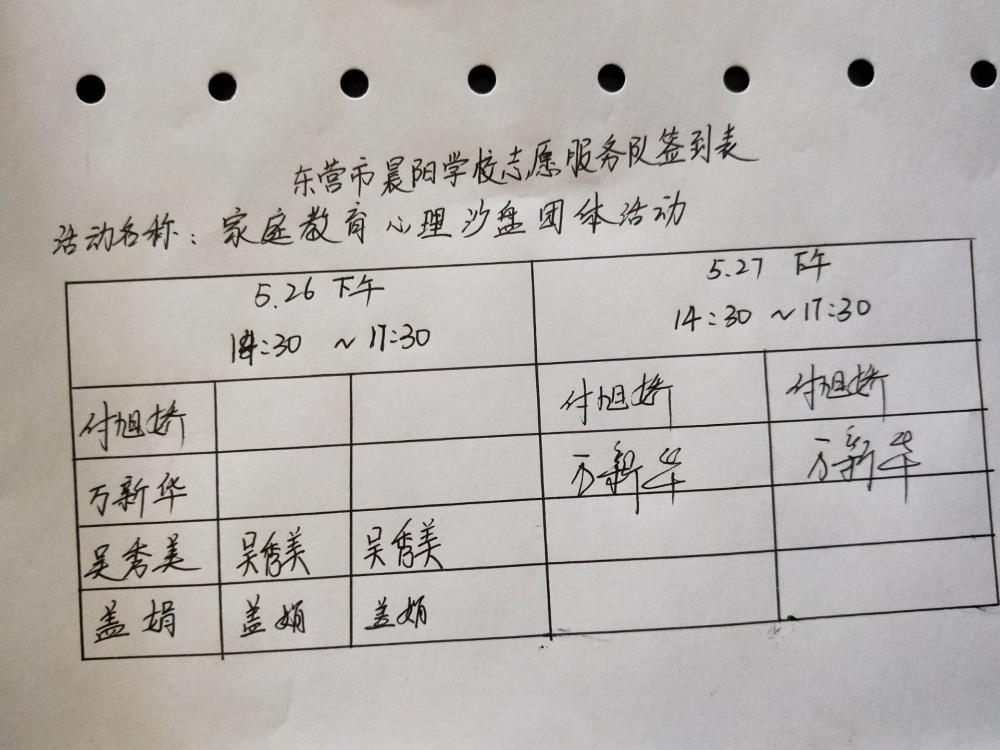 东营市晨阳学校志愿服务队签到表
活动名称：家庭教育心理沙盘团体活动
5.26 下午 5.27 下午
14:30 ~17:30 14:30 ~17:30
付旭娇 付旭娇 付旭娇
万新华 万新华 万新华
吴秀美 吴秀美 吴秀美
盖娟 盖娟 盖娟